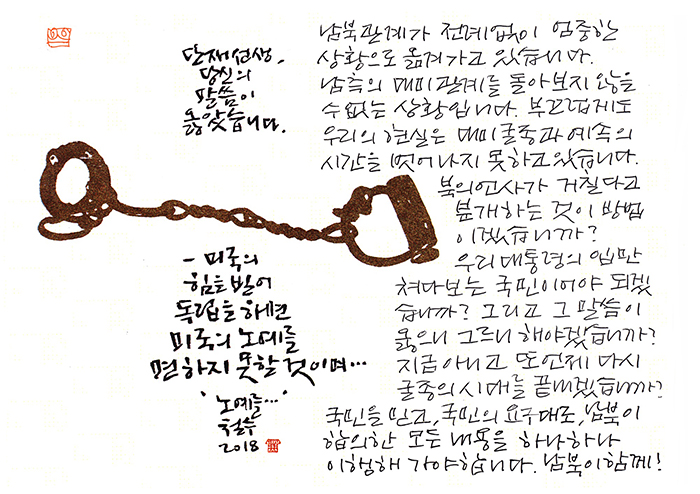 단재선생,
당신의
말씀이
옳았습니다.
- 미국의
힘을 빌어
독립을 하면
미국의 노예를
면하지 못할 것이며…
'노예들…'
2018
남북관계가 전례없이 엄중한
상황으로 옮겨가고 있습니다.
남측의 대미관계를 돌아보지 않을
수 없는 상황입니다. 부끄럽게도
우리의 현실은 대미굴종과 예속의
시간을 벗어나지 못하고 있습니다.
북의 인사가 거칠다고
붙개하는 것이 방법
이겠습니까?
우리 대통령의 입만
쳐다보는 국민이어야 되겠
습니까? 그리고 그 말씀이
옳으니 그르니 해야겠습니까?
지금 아니고 또 언제 다시
굴종의 시대를 끝내겠습니까?
국민을 믿고, 국민의 요구대로, 남북이
합의한 모든 내용을 하나하나
이행해 가야합니다. 남북이 함께!